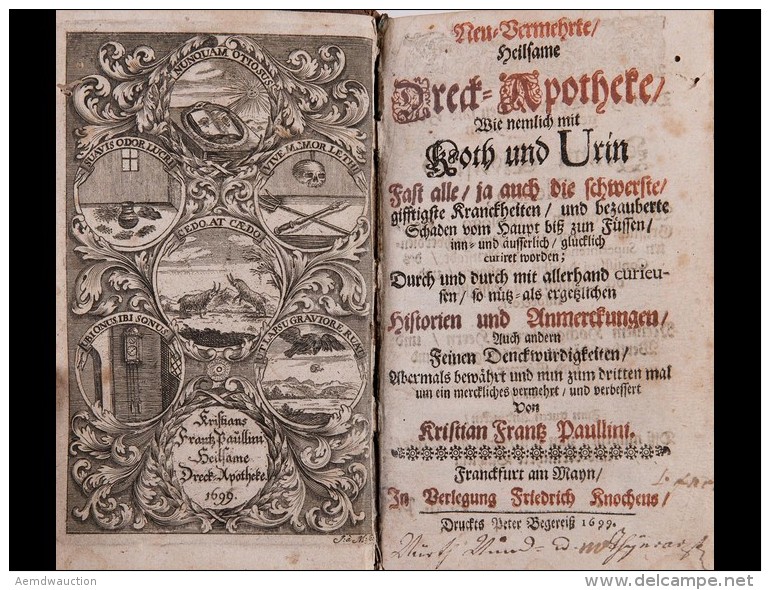 NUNQUAM OTIOSUS
SUAVIS ODOR LUCRI
VIVE MEMOR LETHI
CEDO AT CÆDO
UBI ONUS IBI SONUS
UT LAPSU GRAVIORE RUAM
Kristians
Frantz Paullini
Heilsame
Dreck-Apotheke
1699.
Neu-Vermehrte/
Heilsame
Dreck-Apotheke/
Wie nemlich mit
Koth und Urin
Fast alle/ ja auch die schwerste/
gifftigste Kranckheiten/ und bezauberte
Schaden vom Haupt biß zun Füssen/
inn- und äusserlich/ glücklich
curiret worden;
Durch und durch mit allerhand curieu-
sen/ so nütz-als ergetzlichen
Historien und Anmerckungen/
Auch andern
Feinen Denckwürdigkeiten/
Abermals bewährt und nun zum dritten mal
um ein merckliches vermehrt/ und verbessert
Von
Kristian Frantz Paullini.
Franckfurt am Mayn/
In Verlegung Friedrich Knochens/
Druckts Peter Begereiß 1699.
Aemdwauction
delcampe.net